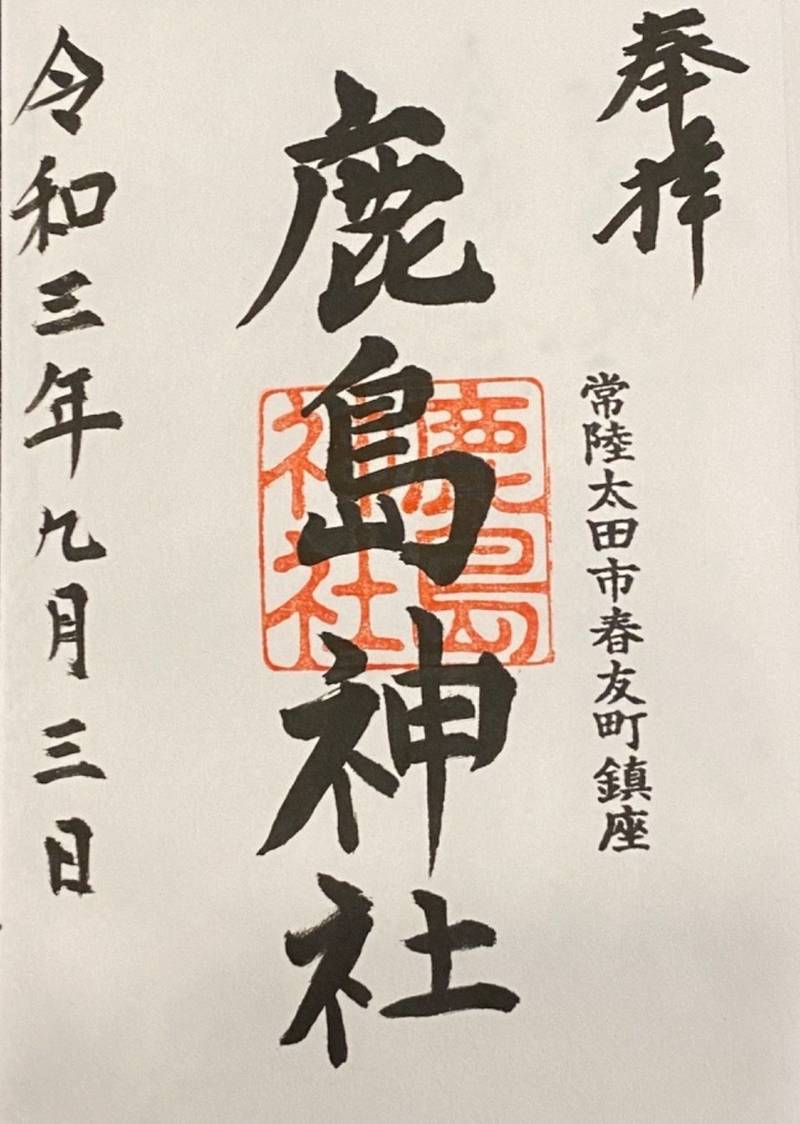 奉拝
常陸太田市春友町鎮座
鹿島神社
鹿島
神社
令和三年九月三日